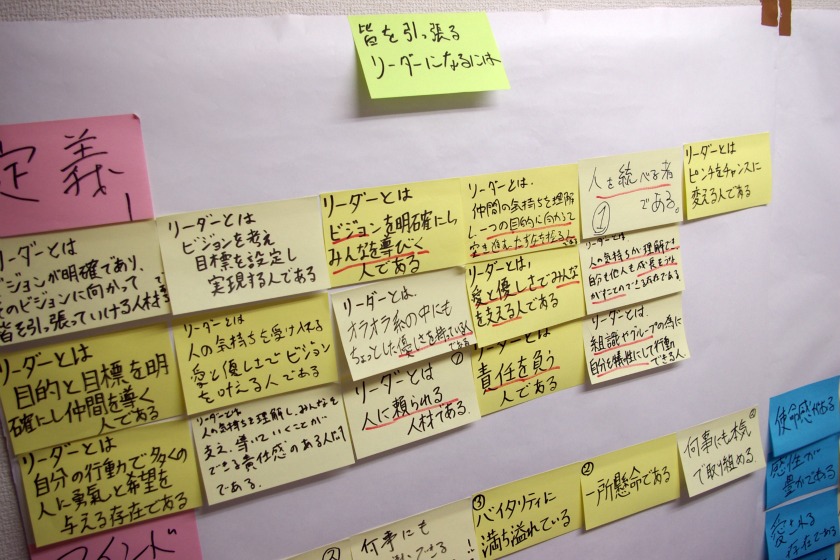 皆を引っ張る
リーダーになるには
定義
リーダーとは
ビジョンが明確であり、
そのビジョンに向かって
皆を引っ張っていける人材
リーダーとは
ビジョンを考え
目標を設定し
実現する人である
リーダーとは
ビジョンを明確にし
みんなを導びく
人である
リーダーとは、
仲間の気持ちを理解
し一つの目的に向かって
人を統べる者
①である。
リーダーとは
ピンチをチャンスに
変える人である
リーダーとは
目的と目標を明
確にし仲間を導く
人である
リーダーとは
人の気持ちを受け入れる
愛と優しさでビジョン
を叶える人である
リーダーとは、
オラオラ系の中にも
ちょっとした優しさを持っている人
である
リーダーとは、
愛と優しさでみんな
を支える人である
リーダーとは
人の気持ちが理解でき
自分も他人も成長を促
がすことのできる存在である
リーダーとは
自分の行動で多くの
人に勇気と希望を
与える存在である
リーダーとは
人の気持ちを理解し、みんなを
支え、導いていくことが
できる責任感のある人だけ
である。
リーダーとは
人に頼られる
人材である。
リーダーとは
責任を負う
人である
リーダーとは、
組織やグループの為に
自分を犠牲にして行動
できる人
マインド
③
何事にも
③
バイタリティに
満ち溢れている
②
一所懸命である
何事にも本気
で取り組める。
使命感がある
感性が
豊かである
愛される
存在である